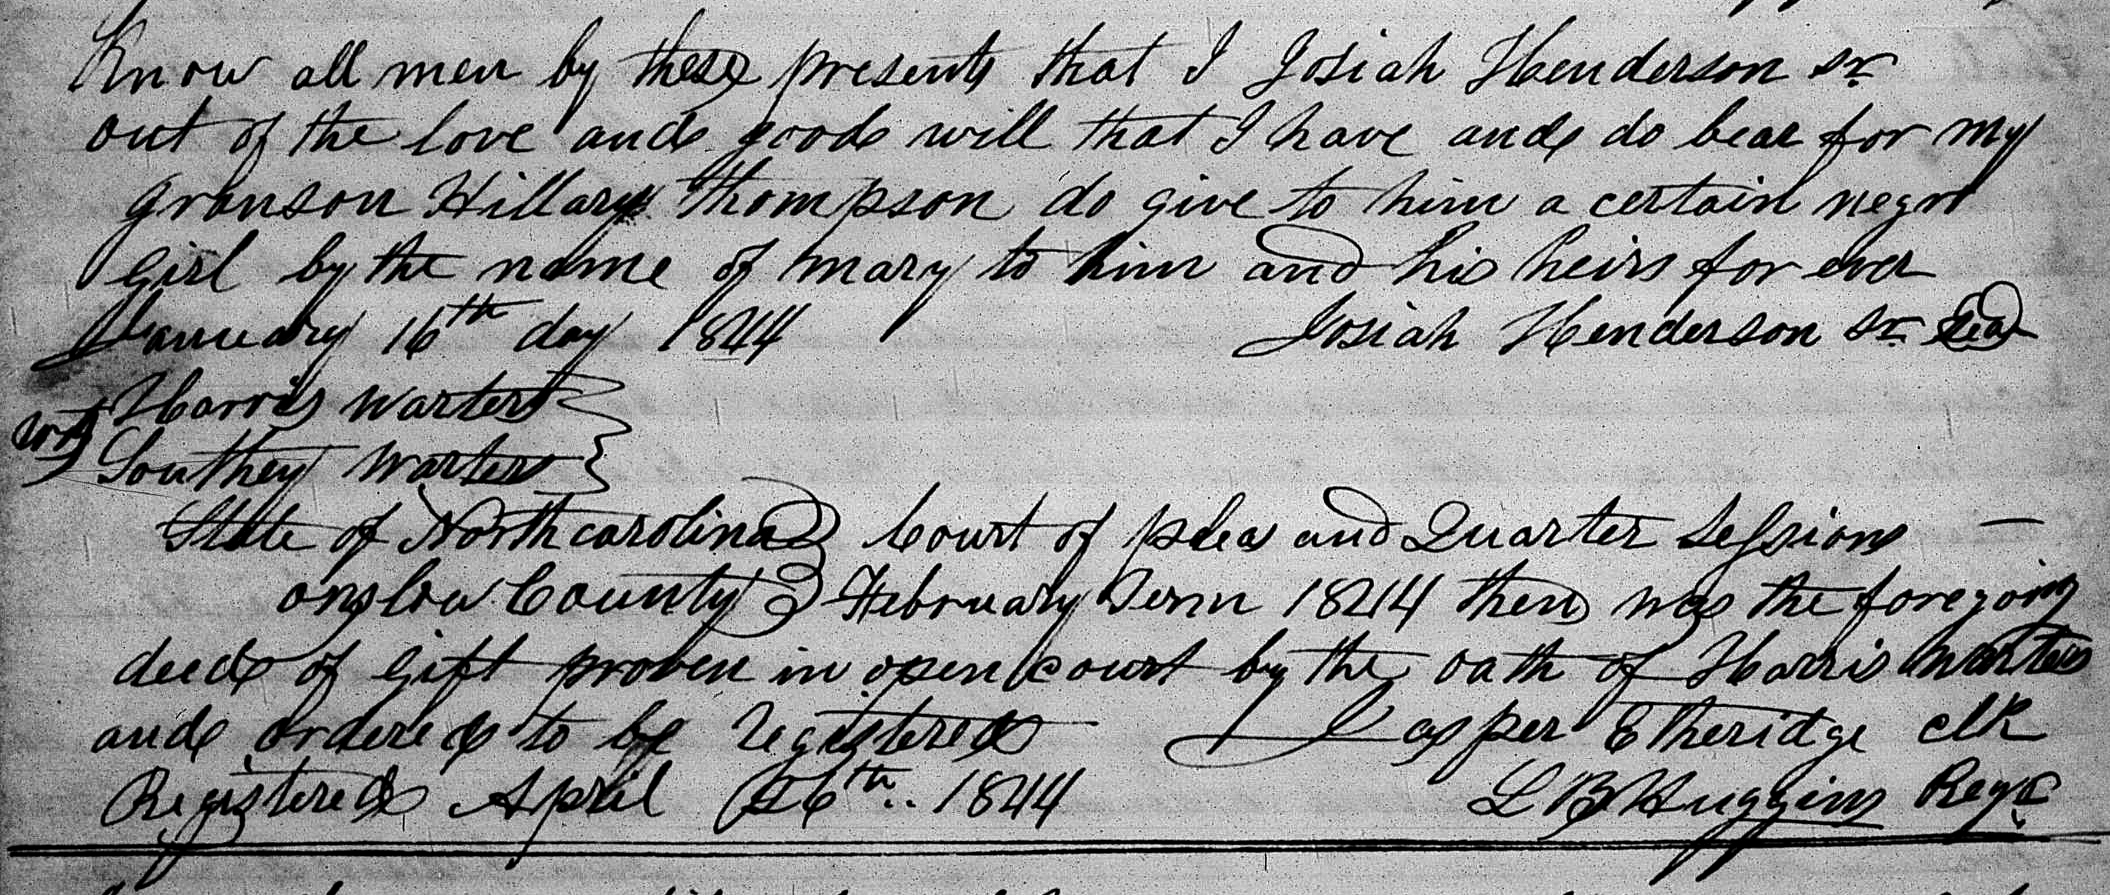 Know all men by these presents that I Josiah Henderson Sr
out of the love and good will that I have and do bear for my
granson Hillary Thompson do give to him a certain negro
girl by the name of mary to him and his heirs for ever
January 16th day 1844 Josiah Henderson Sr Seal
Harris Warters
Wit
Southey Warters
State of North carolina } Court of pleas and Quarter Sessions —
onslow County } February Term 1844 then was the foregoing
deed of gift proven in open court by the oath of Harris Warters
and ordered to be registered Jasper Etheridge clk
Registered April 26th .. 1844 L B Huggins Regr